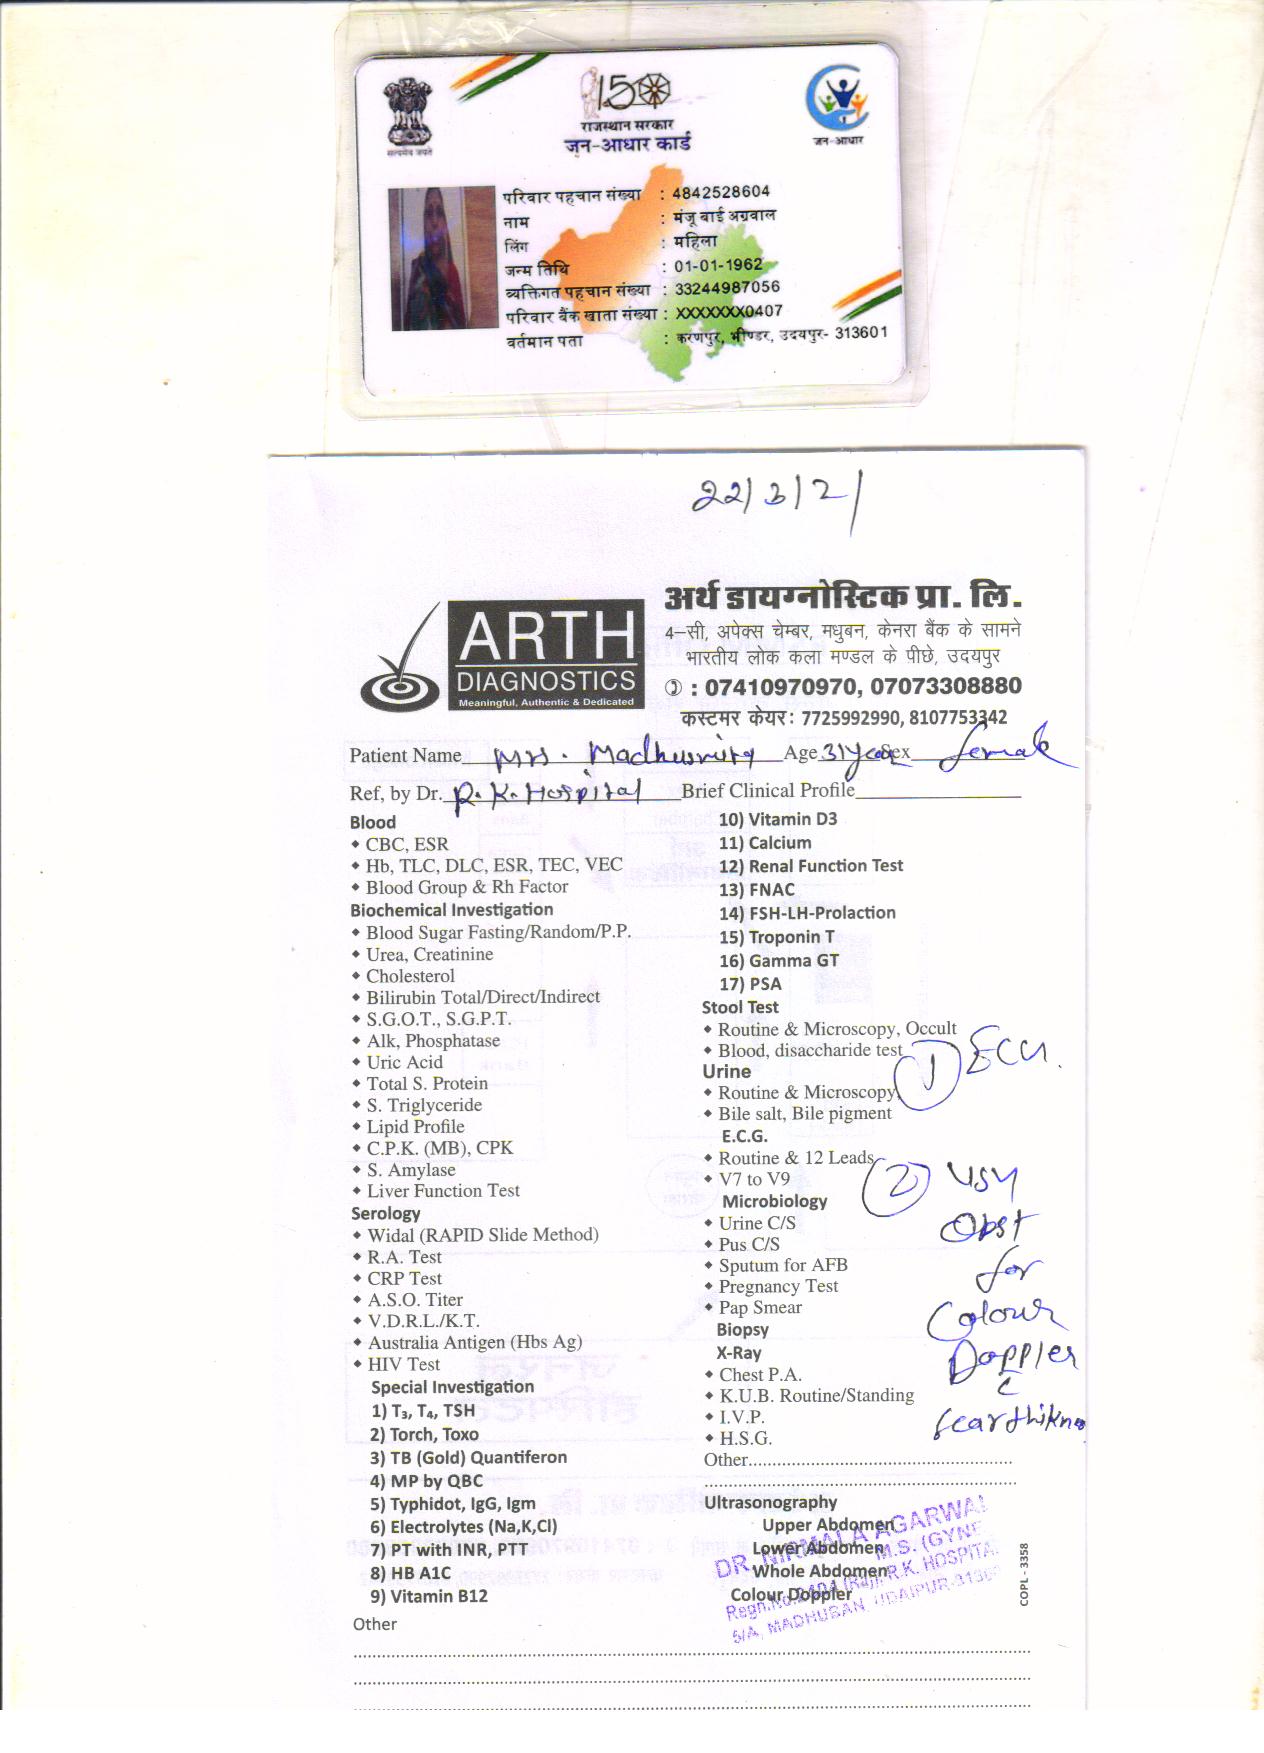 सत्यमेव जयते
150
राजस्थान सरकार
जन-आधार कार्ड
जन-आधार
परिवार पहचान संख्या : 4842528604
नाम : मंजू बाई अग्रवाल
लिंग : महिला
जन्म तिथि : 01-01-1962
व्यक्तिगत पहचान संख्या : 33244987056
परिवार बैंक खाता संख्या : XXXXXXX0407
वर्तमान पता : करणपुर, भीण्डर, उदयपुर- 313601
22/3/21
ARTH
DIAGNOSTICS
Meaningful, Authentic & Dedicated
अर्थ डायग्नोस्टिक प्रा. लि.
4–सी, अपेक्स चेम्बर, मधुबन, केनरा बैंक के सामने
भारतीय लोक कला मण्डल के पीछे, उदयपुर
: 07410970970, 07073308880
कस्टमर केयर: 7725992990, 8107753342
Patient Name Mrs. Age 31 year Sex female
Ref, by Dr. R.K. Hospital Brief Clinical Profile
Blood
CBC, ESR
Hb, TLC, DLC, ESR, TEC, VEC
Blood Group & Rh Factor
Biochemical Investigation
Blood Sugar Fasting/Random/P.P.
Urea, Creatinine
Cholesterol
Bilirubin Total/Direct/Indirect
S.G.O.T., S.G.P.T.
Alk, Phosphatase
Uric Acid
Total S. Protein
S. Triglyceride
Lipid Profile
C.P.K. (MB), CPK
S. Amylase
Liver Function Test
Serology
Widal (RAPID Slide Method)
R.A. Test
CRP Test
A.S.O. Titer
V.D.R.L./K.T.
Australia Antigen (Hbs Ag)
HIV Test
Special Investigation
1) T₃, T₄, TSH
2) Torch, Toxo
3) TB (Gold) Quantiferon
4) MP by QBC
5) Typhidot, IgG, Igm
6) Electrolytes (Na,K,Cl)
7) PT with INR, PTT
8) HB A1C
9) Vitamin B12
Other
10) Vitamin D3
11) Calcium
12) Renal Function Test
13) FNAC
14) FSH-LH-Prolaction
15) Troponin T
16) Gamma GT
17) PSA
Stool Test
Routine & Microscopy, Occult
Blood, disaccharide test
Urine
Routine & Microscopy,
Bile salt, Bile pigment
E.C.G.
Routine & 12 Leads
V7 to V9
Microbiology
Urine C/S
Pus C/S
Sputum for AFB
Pregnancy Test
Pap Smear
Biopsy
X-Ray
Chest P.A.
K.U.B. Routine/Standing
I.V.P.
H.S.G.
Other
Ultrasonography
Upper Abdomen
Lower Abdomen
Whole Abdomen
Colour Doppler
1 ECG.
2 USG
Obst
for
Colour
Doppler
c
DR. NIRMALA AGARWAL
M.S. (GYNE
Regn.No. (Raj) R.K. HOSPITAL
5/A, MADHUBAN, UDAIPUR-
COPL - 3358